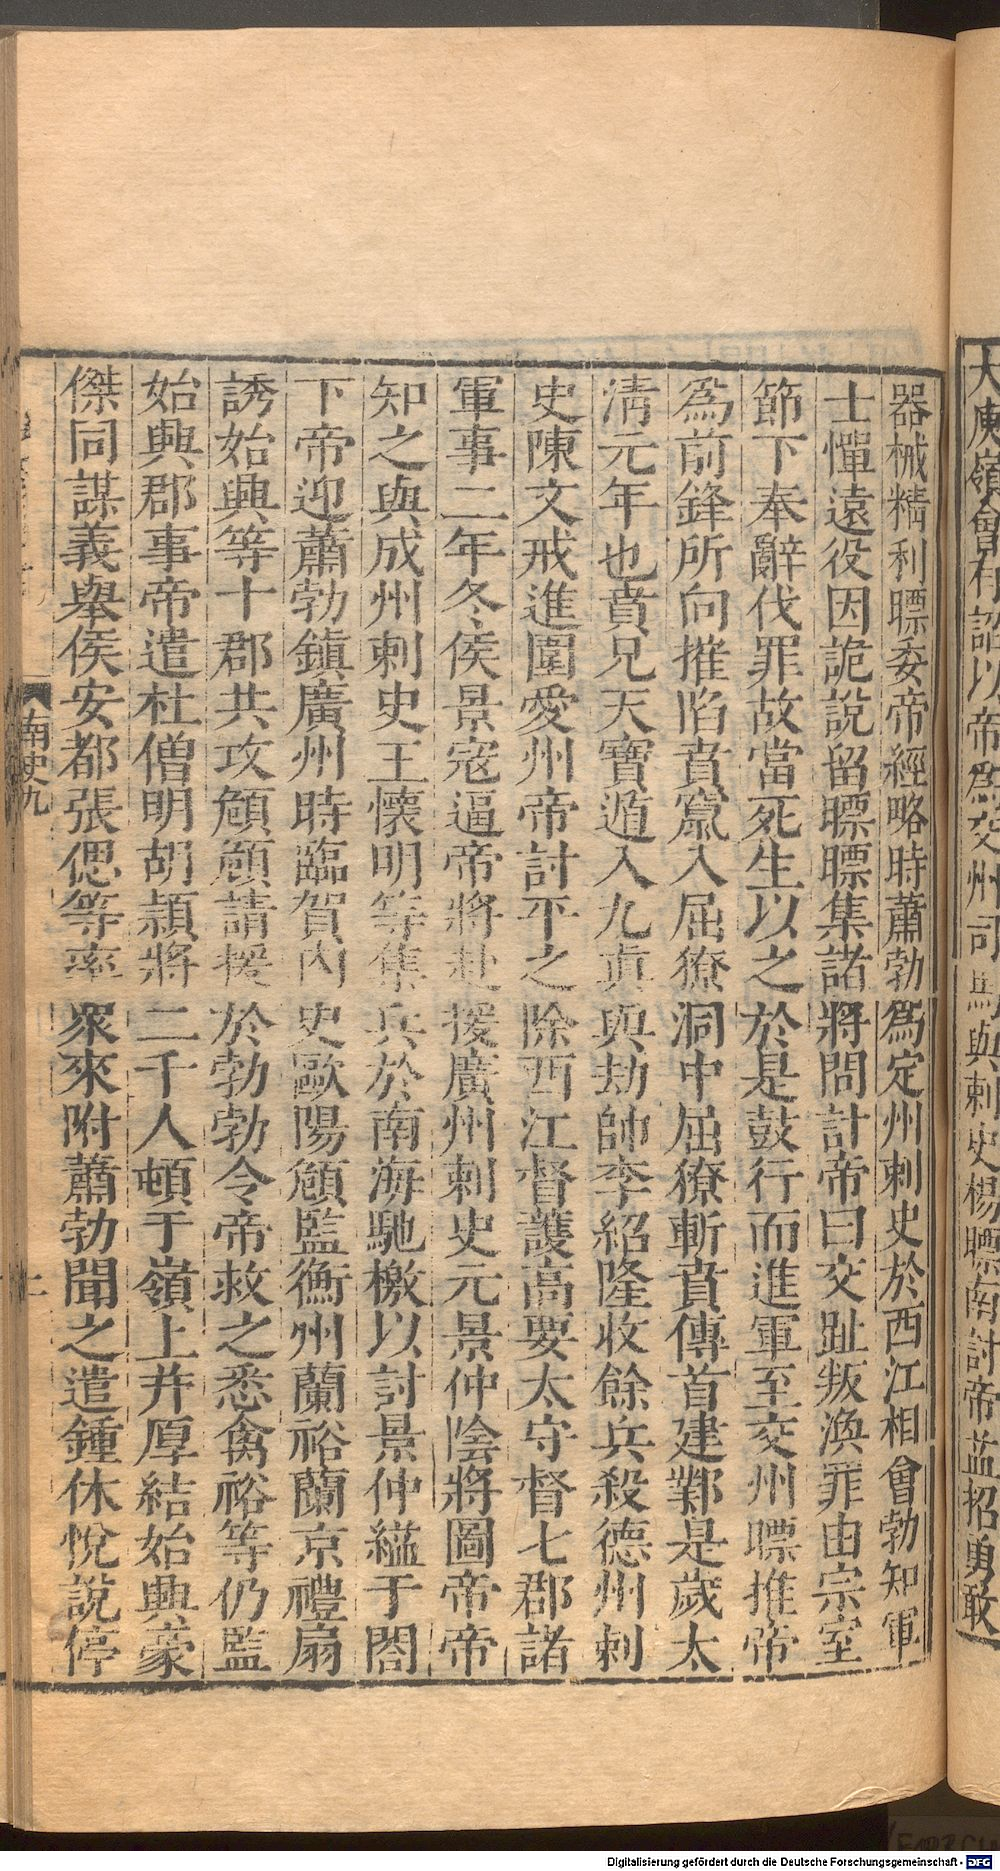 大庾嶺會有詔以帝爲交州司馬與刺史楊㬓南討帝益招勇敢
器械精利㬓委帝經略時蕭勃爲定州刺史於西江相會勃知軍
士憚遠役因詭說留㬓㬓集諸將問計帝曰交趾叛渙罪由宗室
節下奉辭伐罪故當死生以之於是鼓行而進軍至交州㬓推帝
爲前鋒所向摧陷賁竄入屈獠洞中屈獠斬賁傳首建鄴是歲太
淸元年也賁兄天寶遁入九眞與劫帥李紹隆收餘兵殺德州刺
史陳文戒進圍愛州帝討平之除西江督護高要太守督七郡諸
軍事二年冬侯景寇逼帝將赴援廣州刺史元景仲陰將圖帝帝
知之與成州刺史王懷明等集兵於南海馳檄以討景仲縊于閤
下帝迎蕭勃鎭廣州時臨賀內史歐陽頠監衡州蘭裕蘭京禮扇
誘始興等十郡共攻頠頠請援於勃勃令帝救之悉禽裕等仍監
始興郡事帝遣杜僧明胡穎將二千人頓于嶺上幷厚結始興豪
傑同謀義舉侯安都張偲等率眾來附蕭勃聞之遣鍾休悅說停
南史九
Digitalisierung gefördert durch die Deutsche Forschungsgemeinschaft - DFG